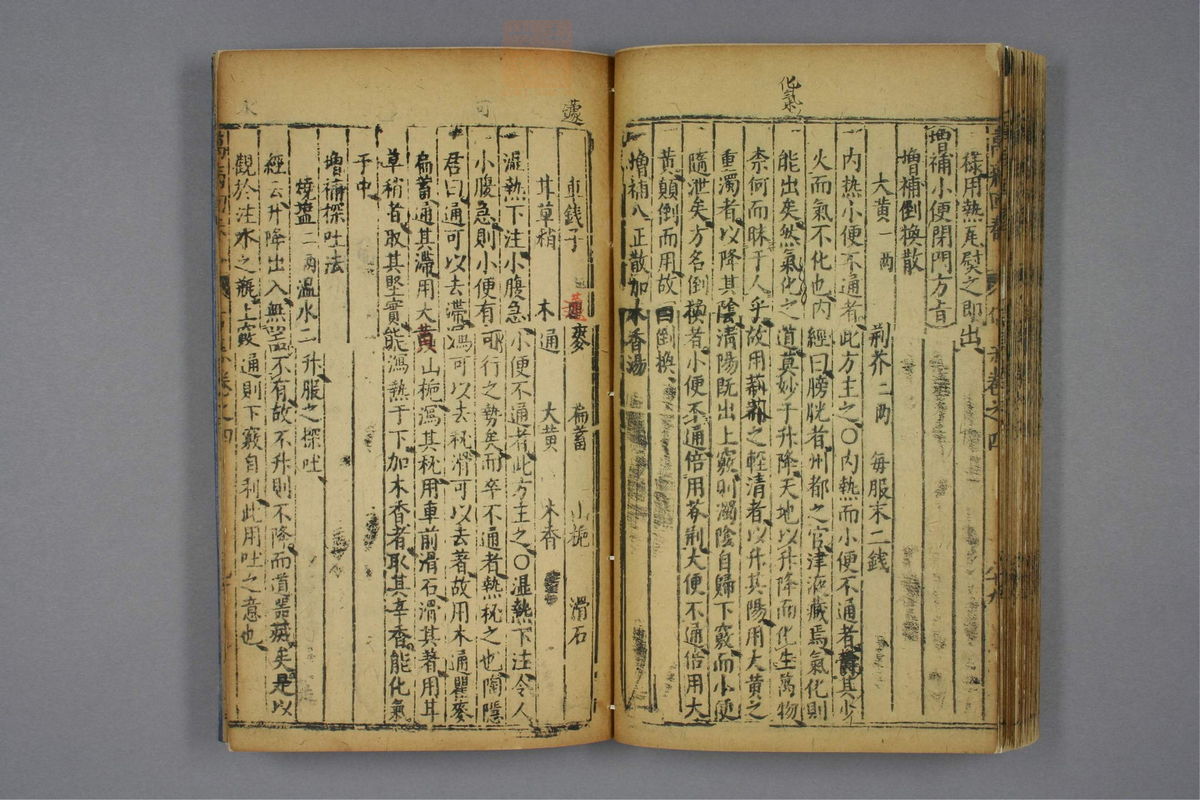 化氣
樣用熱瓦熨之即出
增補小便閉門方㫖
增補倒換散
大黃一兩 荆芥二兩 每服末二錢
內熱小便不通者此方主之〇內熱而小便不通者其少
火而氣不化也內經曰膀胱者州都之官津液藏焉氣化則
能出矣然氣化之道莫妙于升降天地以升降而化生萬物
柰何而昧于人乎故用荊芥之輕清者以升其陽用大黃之
重濁者以降其陰清陽既出上竅則濁陰自歸下竅而小便
隨泄矣方名倒換者小便不通倍用荊大便不通倍用大
黃顛倒而用故曰倒換
增補八正散加木香湯
蘧
車錢子 蘧麥 扁蓄 山梔 滑石
甘草稍 木通 大黃 木香
濕熱下注小腹急小便不通者此方主之〇濕熱下注令人
小腹急則小便有可行之勢矣而卒不通者熱秘之也陶隱
君曰通可以去滯瀉可以去秘滑可以去著故用木通瞿麥
扁蓄通其滯用大黃山梔瀉其秘用車前滑石滑其著用甘
草稍者取其堅實能瀉熱于下加木香者取其辛香能化氣
于中
增補探吐法
燒鹽二兩溫水二升服之探吐
經云升降出入無噐不有故不升則不降而道噐病矣是以
觀於注水之瓶上竅通則下竅自利此用吐之意也